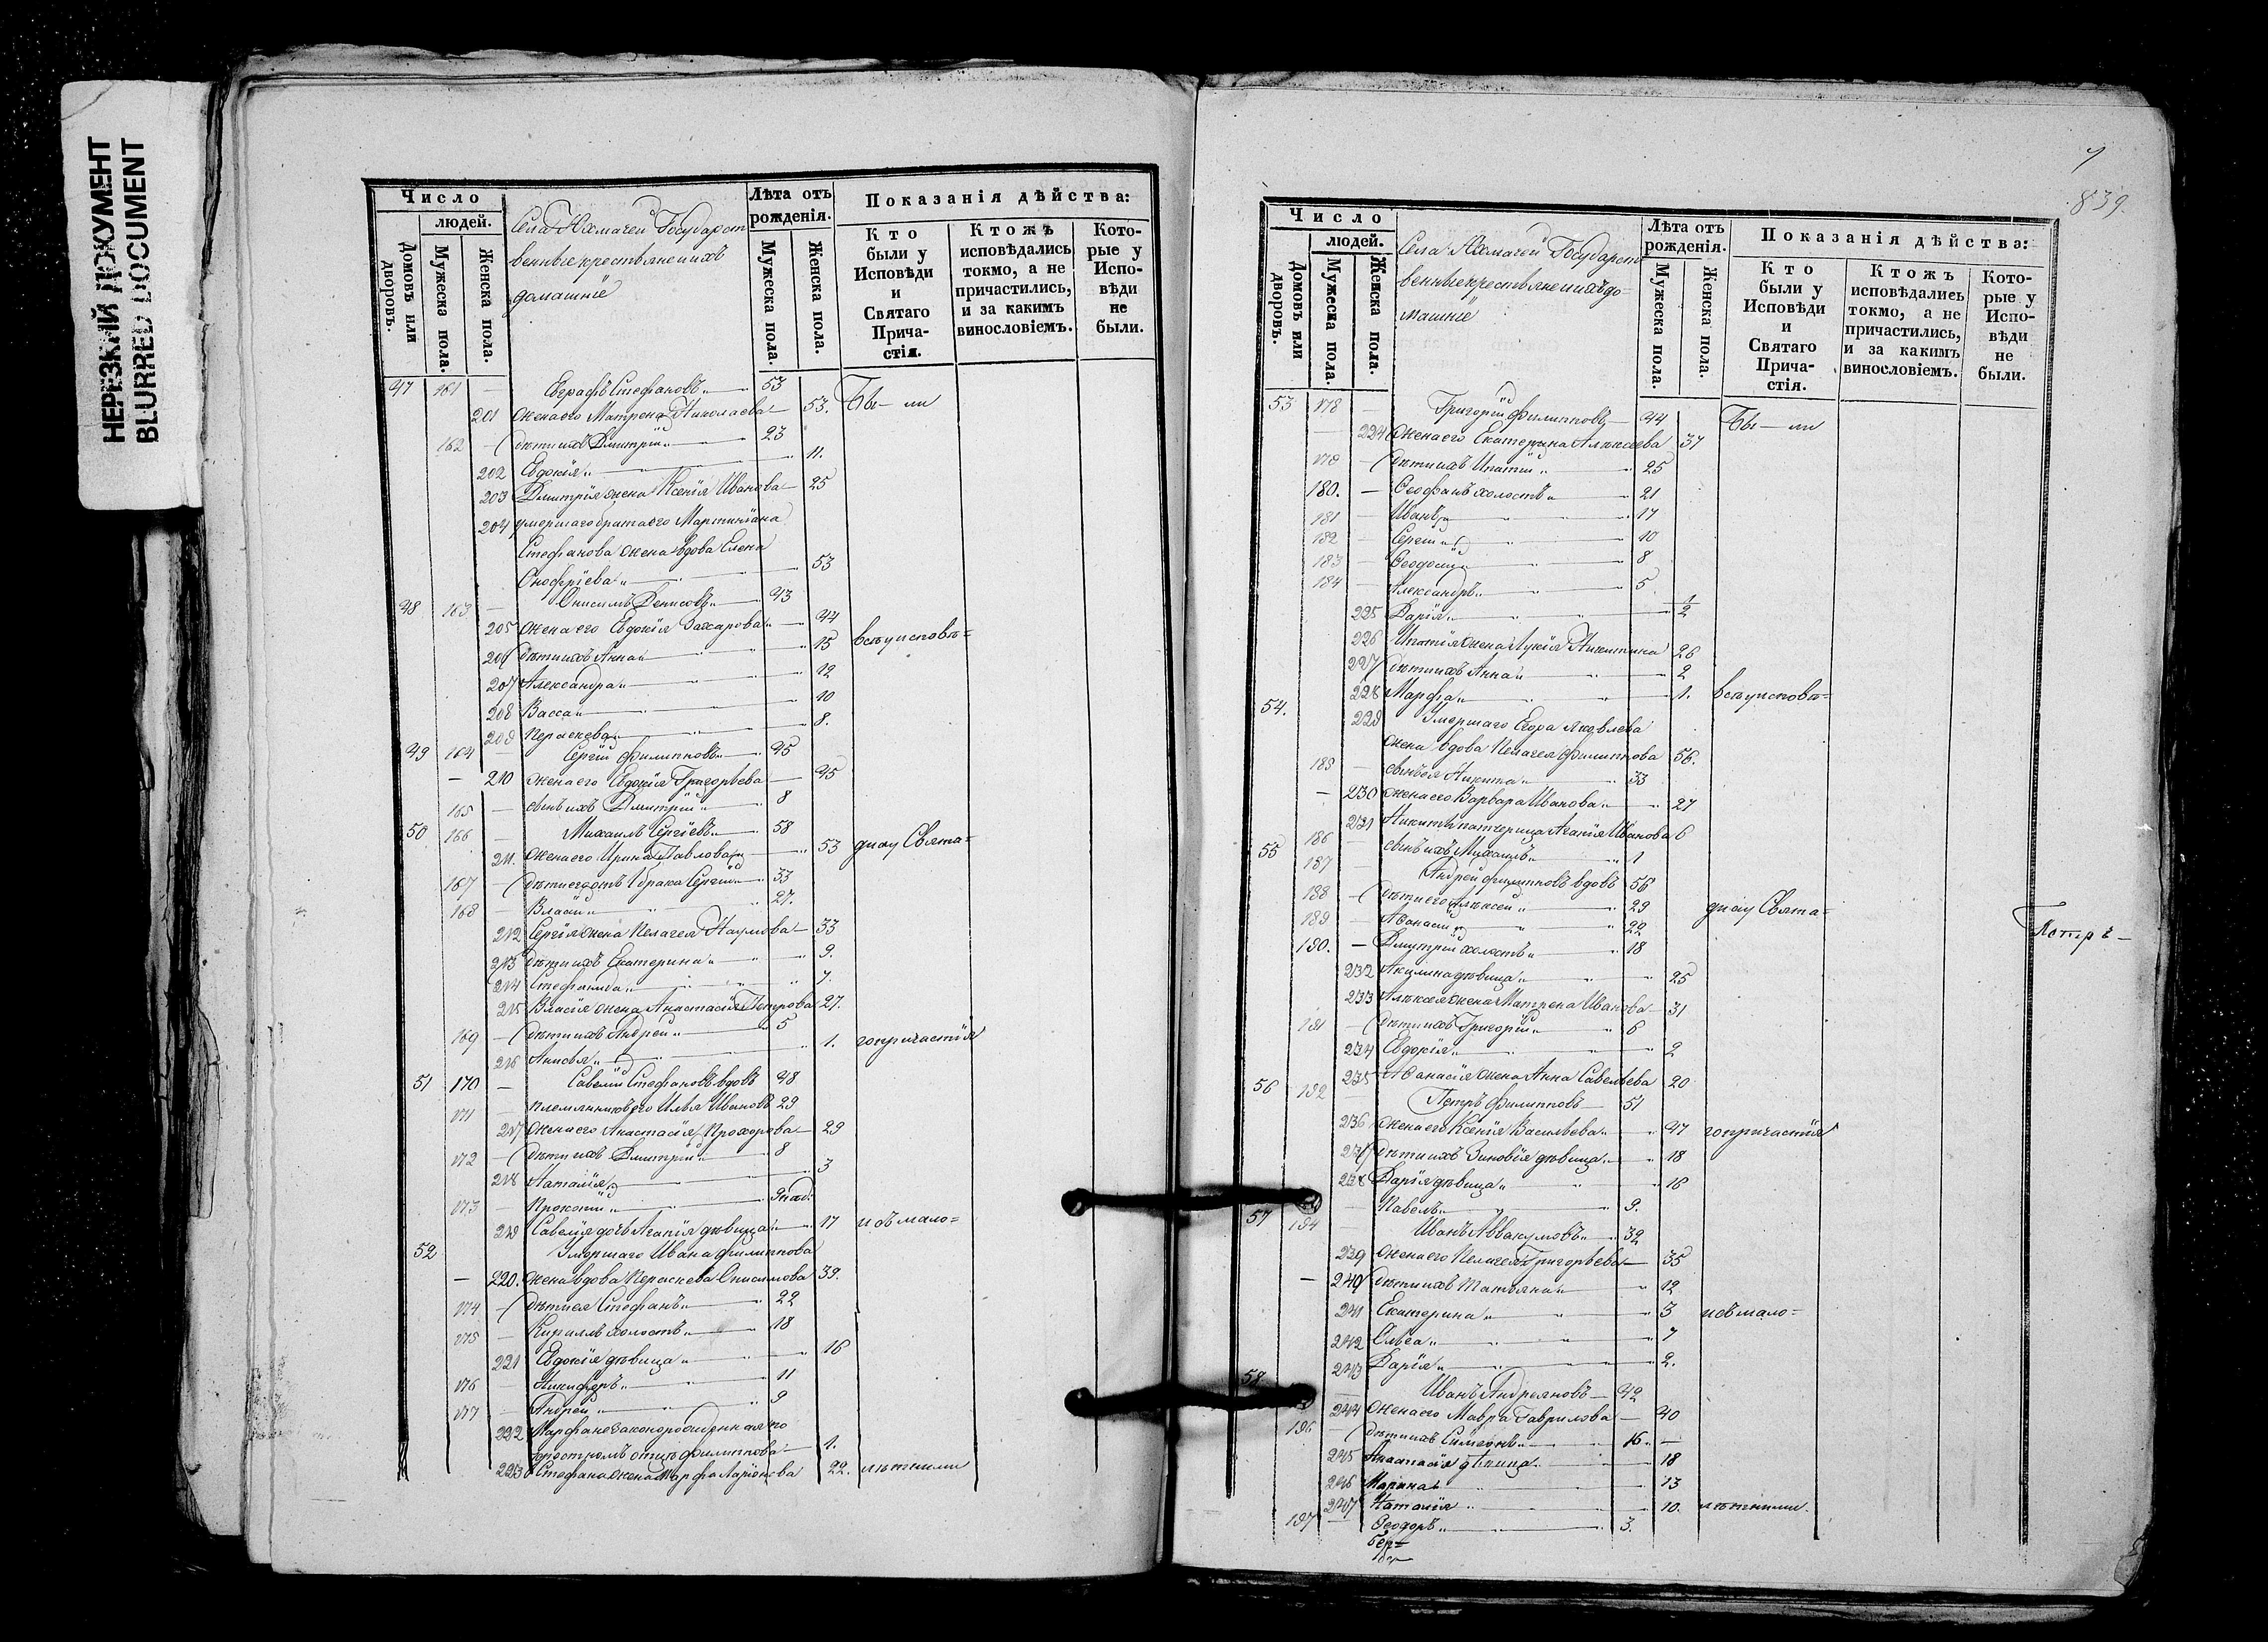 НЕРЕЗКИЙ ДОКУМЕНТ
BLURRED DOCUMENT
Число
людей.
Домовъ или дворовъ.
Мужеска пола.
Женска пола.
Села Государст
венные крестьяне и ихъ
домашніе
Лѣта отъ рожденія.
Мужеска пола.
Женска пола.
Показанія дѣйства:
Кто были у Исповѣди и Святаго Причастія.
Ктожъ исповѣдались токмо, а не причастились, и за какимъ винословіемъ.
Которые у Исповѣди не были.
47 161 — Евграфъ Стефановъ 53
201 Жена его Матрена Николаева 53. Бы — ли
162 — Дѣти ихъ Димитрій 23
202 Евдокія 11.
203 Димитрія жена Ксенія Иванова 25
204 умершаго брата его Мартиніана
Стефанова жена вдова Елена
Онофріева 53
48 163 — Онисимъ Денисовъ 43
205 Жена его Евдокія Захарова 44
206 Дѣти ихъ Анна 15 всѣ у исповѣ=
207 Александра 12
208 Васса 10
209 Параскева 8.
49 164 — Сергій Филипповъ 45
— 210 Жена его Евдокія Григорьева 45
165 — сынъ ихъ Димитрій 8
50 166 — Михаилъ Сергіевъ 58
211. Жена его Ирина Павлова 53 ди и у Свята=
167 — Дѣти его отъ 1 брака Сергій 33
168 — Власій 27.
212 Сергія жена Пелагея Наумова 33
213 Дѣти ихъ Екатерина 9.
214 Стефанида 7.
215 Власія жена Анастасія Петрова 27.
169 — Дѣти ихъ Андрей 5
216 Анисья 1. го причастія
51 170 — Савелій Стефановъ вдовъ 48
171 — племянникъ его Илья Ивановъ 29
217 Жена его Анастасія Прохорова 29
172 — Дѣти ихъ Димитрій 8
218 Наталія 3
173 — Прокопій
219 Савелія дочь Агапія дѣвица 17 и съ мало=
52 Умершаго Ивана Филиппова
— 220. Жена вдова Параскева Онисимова 39.
174 — Дѣти ея Стефанъ 22
175 — Кириллъ холостъ 18
221 Евдокія дѣвица 16
176 — Никифоръ 11
177 — Андрей 9
222 Марфа незаконорожденная по
крестномъ отцѣ Филиппова 1.
223 Стефана жена Марфа Ларіонова 22. лѣтними
7
839.
Число
людей.
Домовъ или дворовъ.
Мужеска пола.
Женска пола.
Села Государст
венные крестьяне и ихъ до=
машніе
Лѣта отъ рожденія.
Мужеска пола.
Женска пола.
Показанія дѣйства:
Кто были у Исповѣди и Святаго Причастія.
Ктожъ исповѣдались токмо, а не причастились, и за какимъ винословіемъ.
Которые у Исповѣди не были.
53 178 — Григорій Филипповъ 44 Бы — ли
— 224 Жена его Екатерина Алексѣева 37
179 — Дѣти ихъ Ипатій 25
180. — Ѳеофанъ холостъ 21
181 — Иванъ 17
182 — Сергій 10
183 — Ѳеодосій 8
184 — Александръ 5
225 Дарія 1/2
226 Ипатія жена Лукія Никитина 26
227 Дѣти ихъ Анна 2
228 Марфа 1. всѣ у исповѣ=
54. 229 Умершаго Егора Яковлева
жена вдова Пелагея Филиппова 56.
185 — сынъ ея Никита 33
— 230 Жена его Варвара Иванова 27
231 Никиты патчерица Агапія Иванова 6
186 — сынъ ихъ Михаилъ 1
55 187 — Андрей Филипповъ вдовъ 56
188 — Дѣти его Алексѣй 29 ди и у Свята=
189 — Аѳанасій 22
190. — Дмитрій холостъ 18
232 Акилина дѣвица 25
233 Алексѣя жена Матрена Иванова 31
191 — Дѣти ихъ Григорій 6
234 Евдокія 2
235 Аѳанасія жена Анна Савельева 20
56 192 — Петръ Филипповъ 51
236 Жена его Ксенія Васильева 47 го причастія
237 Дѣти ихъ Зиновія дѣвица 18
238 Дарія дѣвица 16
— Павелъ 9.
57 194 — Иванъ Аввакумовъ 32
239 Жена его Пелагея Григорьева 35
— 240 Дѣти ихъ Татьяна 12
241 Екатерина 3 и съ мало=
242 Ольга 7
243 Дарія 2.
58 — Иванъ Андреяновъ 42
244 Жена его Мавра Гаврилова 40
196 — Дѣти ихъ Симеонъ 16.
245 Анастасія дѣвица 18
246 Марина 13
247 Наталія 10. лѣтними.
197 — Ѳеодоръ 3.